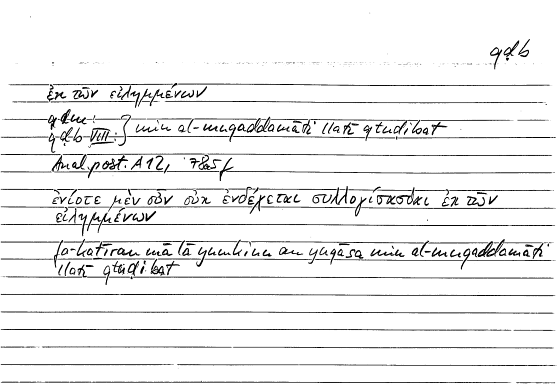 qḍb
ἐκ τῶν εἰλημμένων
qdm:
qḍb VIII: } min al-muqaddamāti llatī qtuḍibat
Anal. post. A 12, 78a5f
ἐνίοτε μὲν οὖν οὐκ ἐνδέχεται συλλογίσασθαι ἐκ τῶν
εἰλημμένων
fa-kaṯīran mā lā yumkinu an yuqāsa min al-muqaddamāti
llatī qtuḍibat